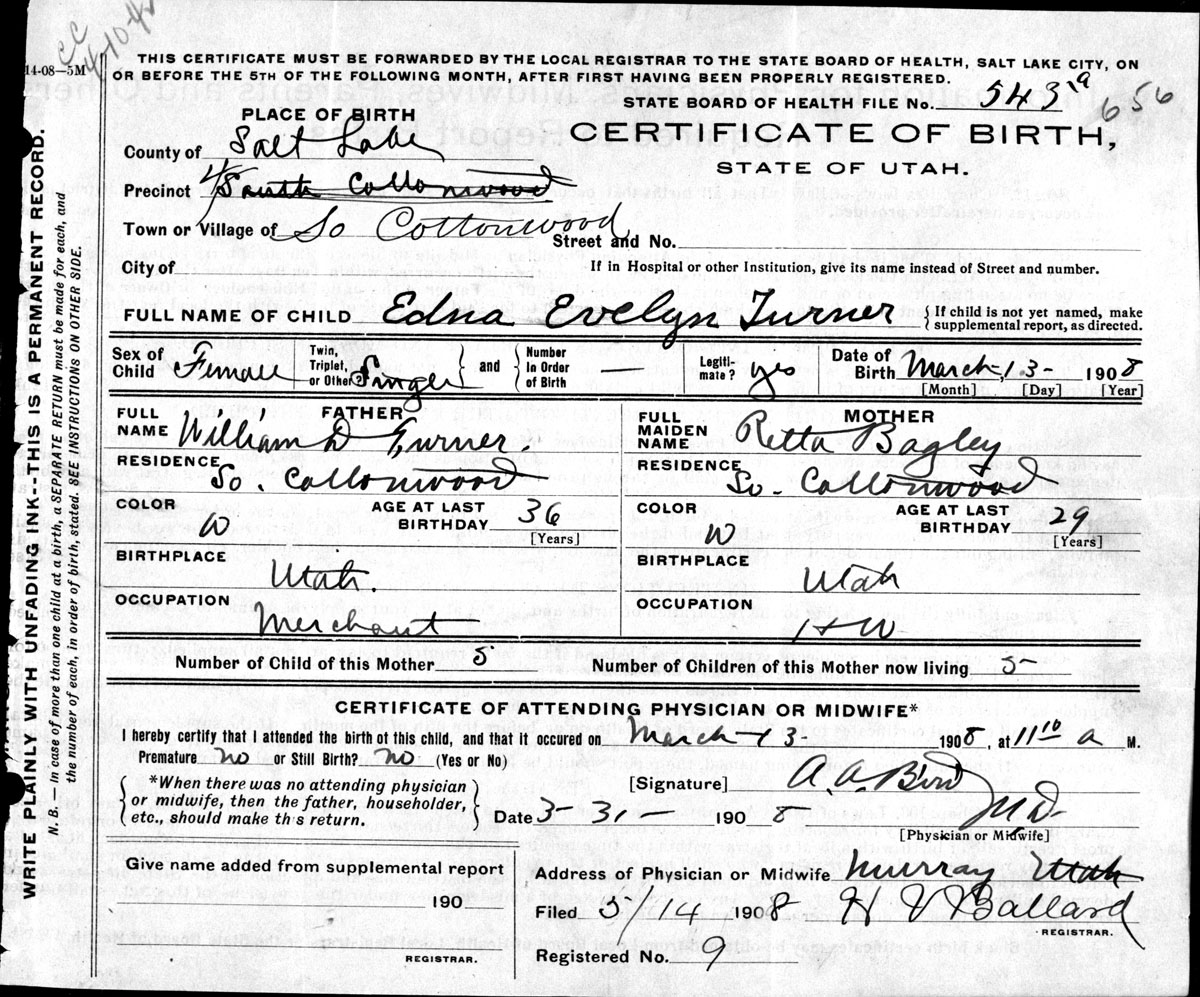 14-08—5M
THIS CERTIFICATE MUST BE FORWARDED BY THE LOCAL REGISTRAR TO THE STATE BOARD OF HEALTH, SALT LAKE CITY, ON
OR BEFORE THE 5TH OF THE FOLLOWING MONTH, AFTER FIRST HAVING BEEN PROPERLY REGISTERED.
STATE BOARD OF HEALTH FILE No. 543 a 656
PLACE OF BIRTH
CERTIFICATE OF BIRTH,
STATE OF UTAH.
County of Salt Lake
Precinct 4 South Cottonwood
Town or Village of So Cottonwood
Street and No.
City of
If in Hospital or other Institution, give its name instead of Street and number.
FULL NAME OF CHILD Edna Evelyn Turner { If child is not yet named, make
supplemental report, as directed.
Sex of Child Female Twin, Triplet, or Other? Single } and { Number In Order of Birth — Legiti-mate? yes Date of Birth March, 13- 1908
[Month] [Day] [Year]
FULL NAME FATHER William D Turner.
FULL MAIDEN NAME MOTHER Retta Bagley
RESIDENCE So. Cottonwood
RESIDENCE So. Cottonwood
COLOR W AGE AT LAST BIRTHDAY 36 [Years]
COLOR W AGE AT LAST BIRTHDAY 29 [Years]
BIRTHPLACE Utah.
BIRTHPLACE Utah
OCCUPATION Merchant
OCCUPATION H W
Number of Child of this Mother 5 Number of Children of this Mother now living 5-
CERTIFICATE OF ATTENDING PHYSICIAN OR MIDWIFE*
I hereby certify that I attended the birth of this child, and that it occured on March 13 1908, at 11 10 a M.
Premature no or Still Birth? no (Yes or No)
{ *When there was no attending physician
or midwife, then the father, householder,
etc., should make th s return. }
[Signature] A. A. Bird M.D-
Date 3-31- 1908
[Physician or Midwife]
Give name added from supplemental report
190
REGISTRAR.
Address of Physician or Midwife Murray Utah
Filed 5/14 1908 H V Ballard
REGISTRAR.
Registered No. 9
WRITE PLAINLY WITH UNFADING INK--THIS IS A PERMANENT RECORD.
N. B. — In case of more than one child at a birth, a SEPARATE RETURN must be made for each, and
the number of each, in order of birth, stated. SEE INSTRUCTIONS ON OTHER SIDE.